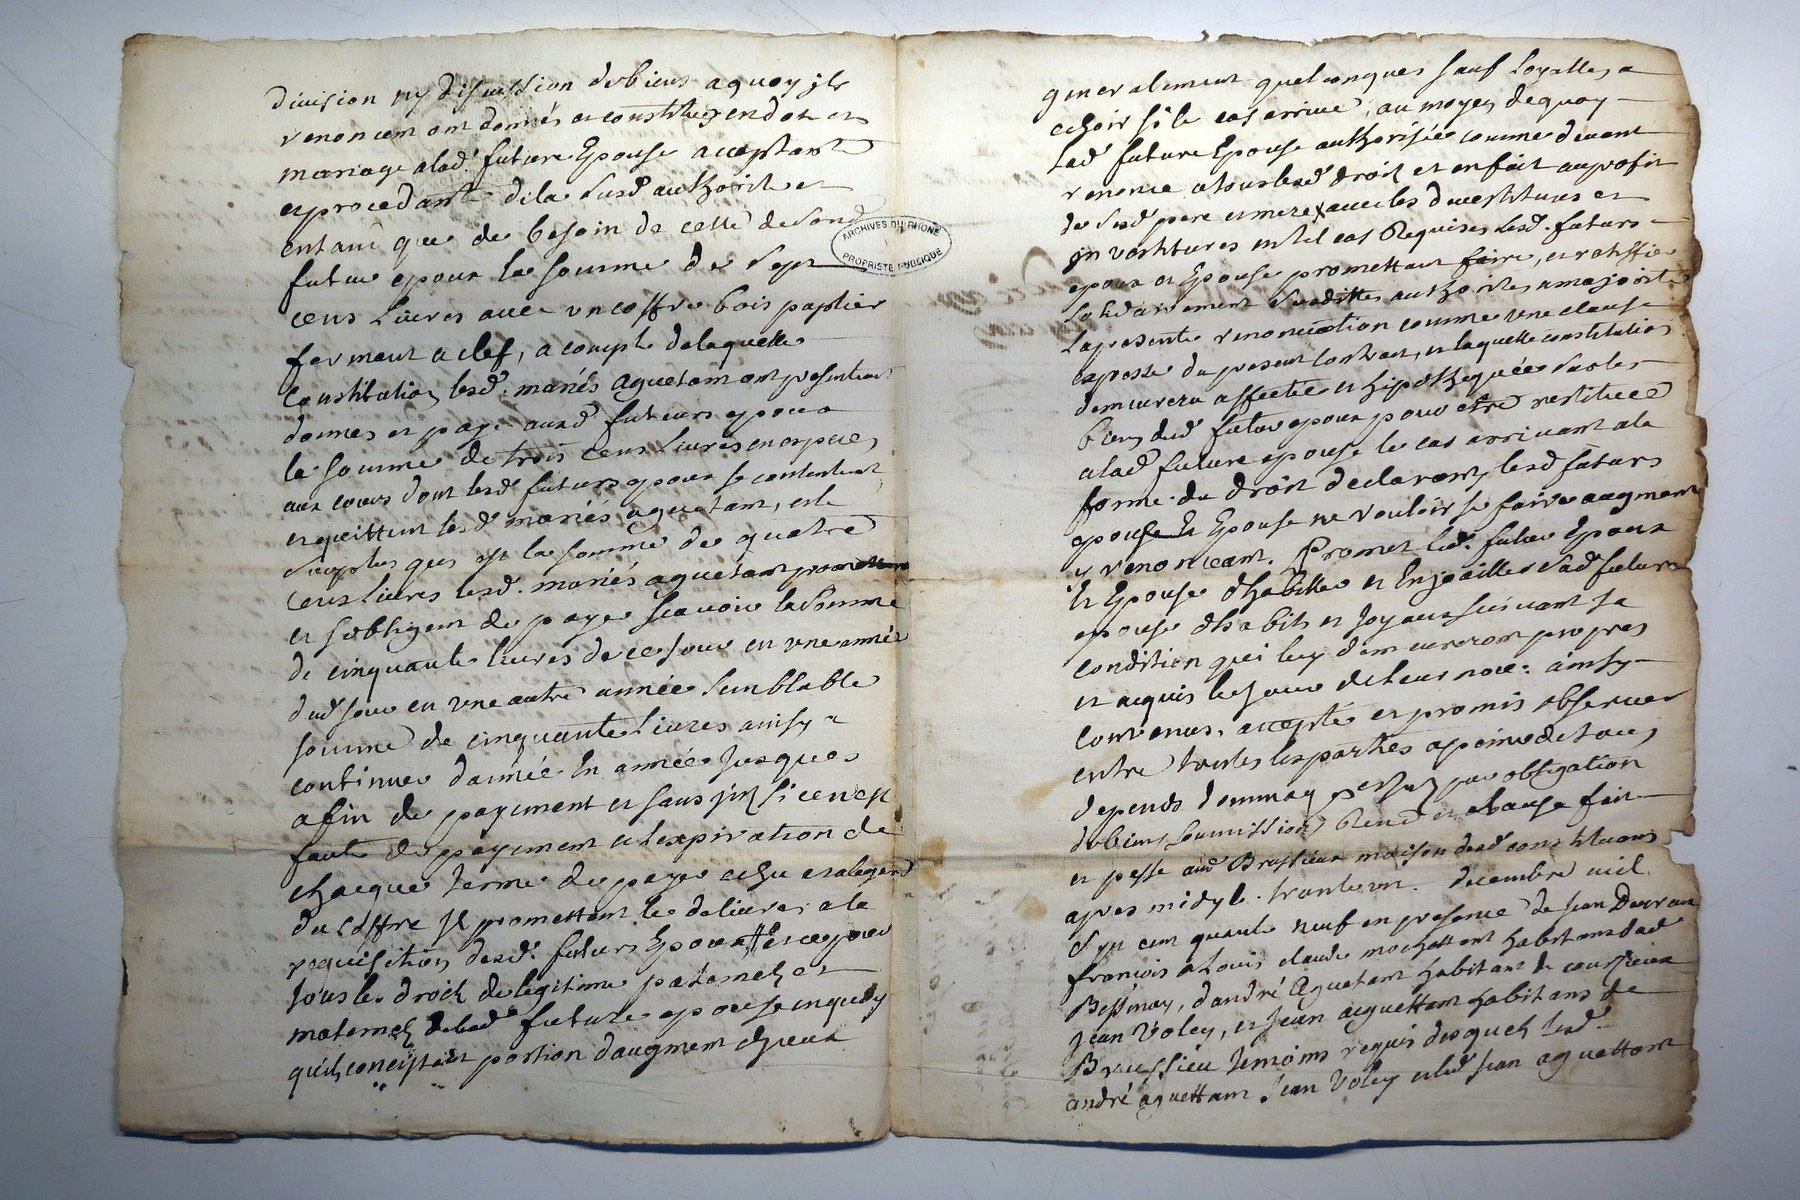 division ny discussion de biens a quoy ils
renoncent ont donnés et constitués en dot et
mariage a lad. future Epouse acceptante
et procedante de la susd. authorité et
entant que de besoin de celle de sond
futur epoux la somme de sept
cens livres avec un coffre bois
fermant a clef, a compte de laquelle
constitution lesd. mariés aguetant ont presentement
donnés et payé auxd futurs epoux
la somme de trois cens livres en especes
aux cours dont lesd futurs epoux se contentent
et quittent lesd mariés aguetant, et le
surplus qui est la somme de quatre
cens livres lesd. mariés aguetant promettent
et sobligent de payer scavoir la somme
de cinquante livres de ce jour en une année
dud jour en une autre année semblable
somme de cinquante livres ainsy a
continuer d'année En année jusques
a fin de payement et sans si ce n'est
faute de payement a l'expiration de
chaque terme de paye echu et a legard
du coffre Il promettent le delivrer a la
requisition desd. futurs Epoux et ce pour
tous les droits de legitime paternels et
maternels de lad. future epouse en quoy
qu'ils consistent portion d'augment cheux
generalement quelconques sauf loyalle a
echoir si le cas arrive, au moyen de quoy
lad future Epouse authorisée comme devant
renonce a tous lesd droits et en fait au profit
de sesd pere et mere avec les devestitures et
investitures en tel cas Requises lesd. futurs
epoux et Epouse promettant faire, et ratiffier
solidairement susdittes authorités a majorité
la presente renonciation comme une clause
expresse du present contract, et laquelle constitution
demeurera affectée et hipothequée sur les
biens dud futur epoux pour etre restituée
a lad future epouse le cas arrivant a la
forme du droit declarant lesd futurs
epouse Et Epouse ne vouloir se faire augment
y renonceant. Promet led. futur Epoux
Et Epouse d'habiller et Enjoailler sad future
epouse d'habits et joyaux suivant sa
condition qui luy demeureront propres
et acquis le jour de leur noce: ainsy
convenus, accepté et promis observer
entre toutes les parties a peine de tous
depends dommages par obligation
de biens soumissions Renon et clause fait
et passé aud Brussieux maison desd constituans
apres midy le. trente un. decembre mil
sept cent quarante neuf en presence de Jean
francois a Louis claude habitans dud
Bessenay, d'andré Aguetant habitant de courzieux
Jean Voley, et Jean aguettant habitans de
Brussieu temoins requis desquels lesd.
andré aguettant Jean Voley et led Jean aguettant
ARCHIVES DU RHONE
PROPRIETE PUBLIQUE